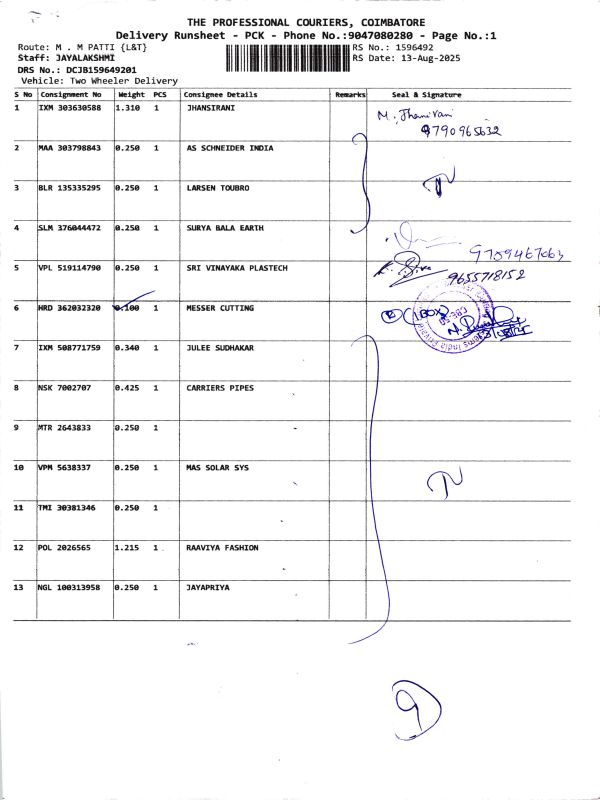 THE PROFESSIONAL COURIERS, COIMBATORE
Delivery Runsheet - PCK - Phone No.:9047080280 - Page No.:1
Route: M . M PATTI {L&T} RS No.: 1596492
Staff: JAYALAKSHMI RS Date: 13-Aug-2025
DRS No.: DCJB159649201
Vehicle: Two Wheeler Delivery
S No Consignment No Weight PCS Consignee Details Remarks Seal & Signature
1 IXM 303630588 1.310 1 JHANSIRANI M. Jhansirani
9790965632
2 MAA 303798843 0.250 1 AS SCHNEIDER INDIA
3 BLR 135335295 0.250 1 LARSEN TOUBRO N
4 SLM 376044472 0.250 1 SURYA BALA EARTH 9759467063
5 VPL 519114790 0.250 1 SRI VINAYAKA PLASTECH 9655718152
6 HRD 362032320 0.100 1 MESSER CUTTING 1 BOX
7 IXM 508771759 0.340 1 JULEE SUDHAKAR
8 NSK 7002707 0.425 1 CARRIERS PIPES
9 MTR 2643833 0.250 1
10 VPM 5638337 0.250 1 MAS SOLAR SYS N
11 TMI 30381346 0.250 1
12 POL 2026565 1.215 1 RAAVIYA FASHION
13 NGL 100313958 0.250 1 JAYAPRIYA
9